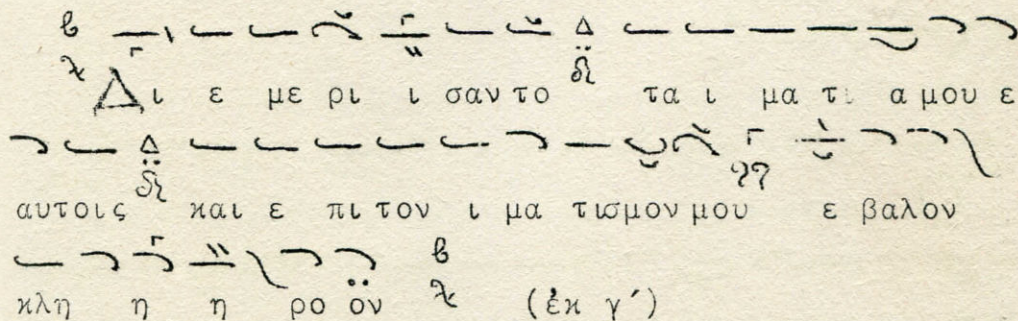 Δι ε με ρι ι σαν το τα ι μα τι α μου ε
αυτοις και ε πι τον ι μα τισμον μου ε βαλον
κλη η η ρο ον (ἐκ γ´)